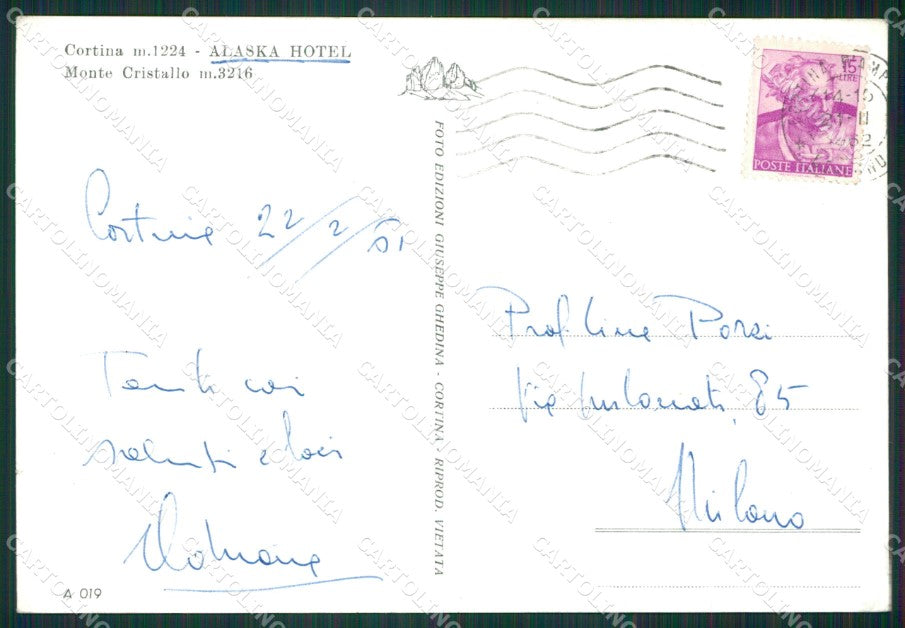 Cortina m.1224 - ALASKA HOTEL
Monte Cristallo m.3216
15
LIRE
POSTE ITALIANE
FOTO EDIZIONI GIUSEPPE GHEDINA - CORTINA - RIPROD. VIETATA
22/2/
Tanti cari
saluti e baci
Prof. Porzi
Via 85
Milano
A 019
CARTOLINOMANIA